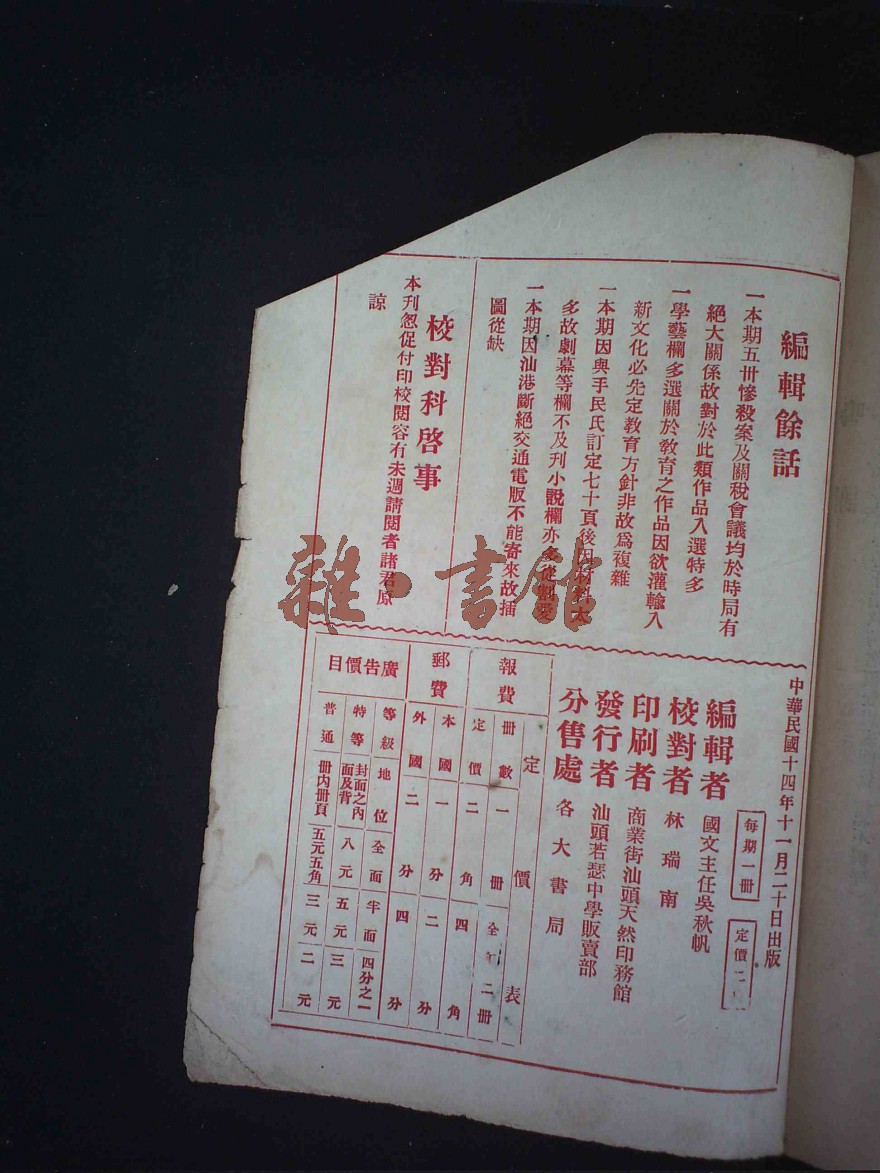 編輯餘話
一本期五卅慘殺案及關稅會議均於時局有
絕大關係故對於此類作品入選特多
一學藝欄多選關於教育之作品因欲灌輸入
新文化必先定教育方針非故爲複雜
一本期因與手民氏訂定七十頁後因材料太
多故劇幕等欄不及刊小說欄亦多從割愛
一本期因汕港斷絕交通電版不能寄來故插
圖從缺
校對科啓事
本刊怱促付印校閱容有未週請閱者諸君原
諒
中華民國十四年十一月二十日出版
每期一册
定價二
編輯者 國文主任吳秋帆
校對者 林瑞南
印刷者 商業街汕頭天然印務館
發行者 汕頭若瑟中學販賣部
分售處 各大書局
定價表
報費 册數 一册 全 二册
定價 二角 四角
郵費 本國 一分 二分
外國 二分 四分
廣告價目
等級 地位 全面 半面 四分之一
特等 封面之內面及背 八元 五元 三元
普通 册内册頁 五元五角 三元 二元
雜·書館